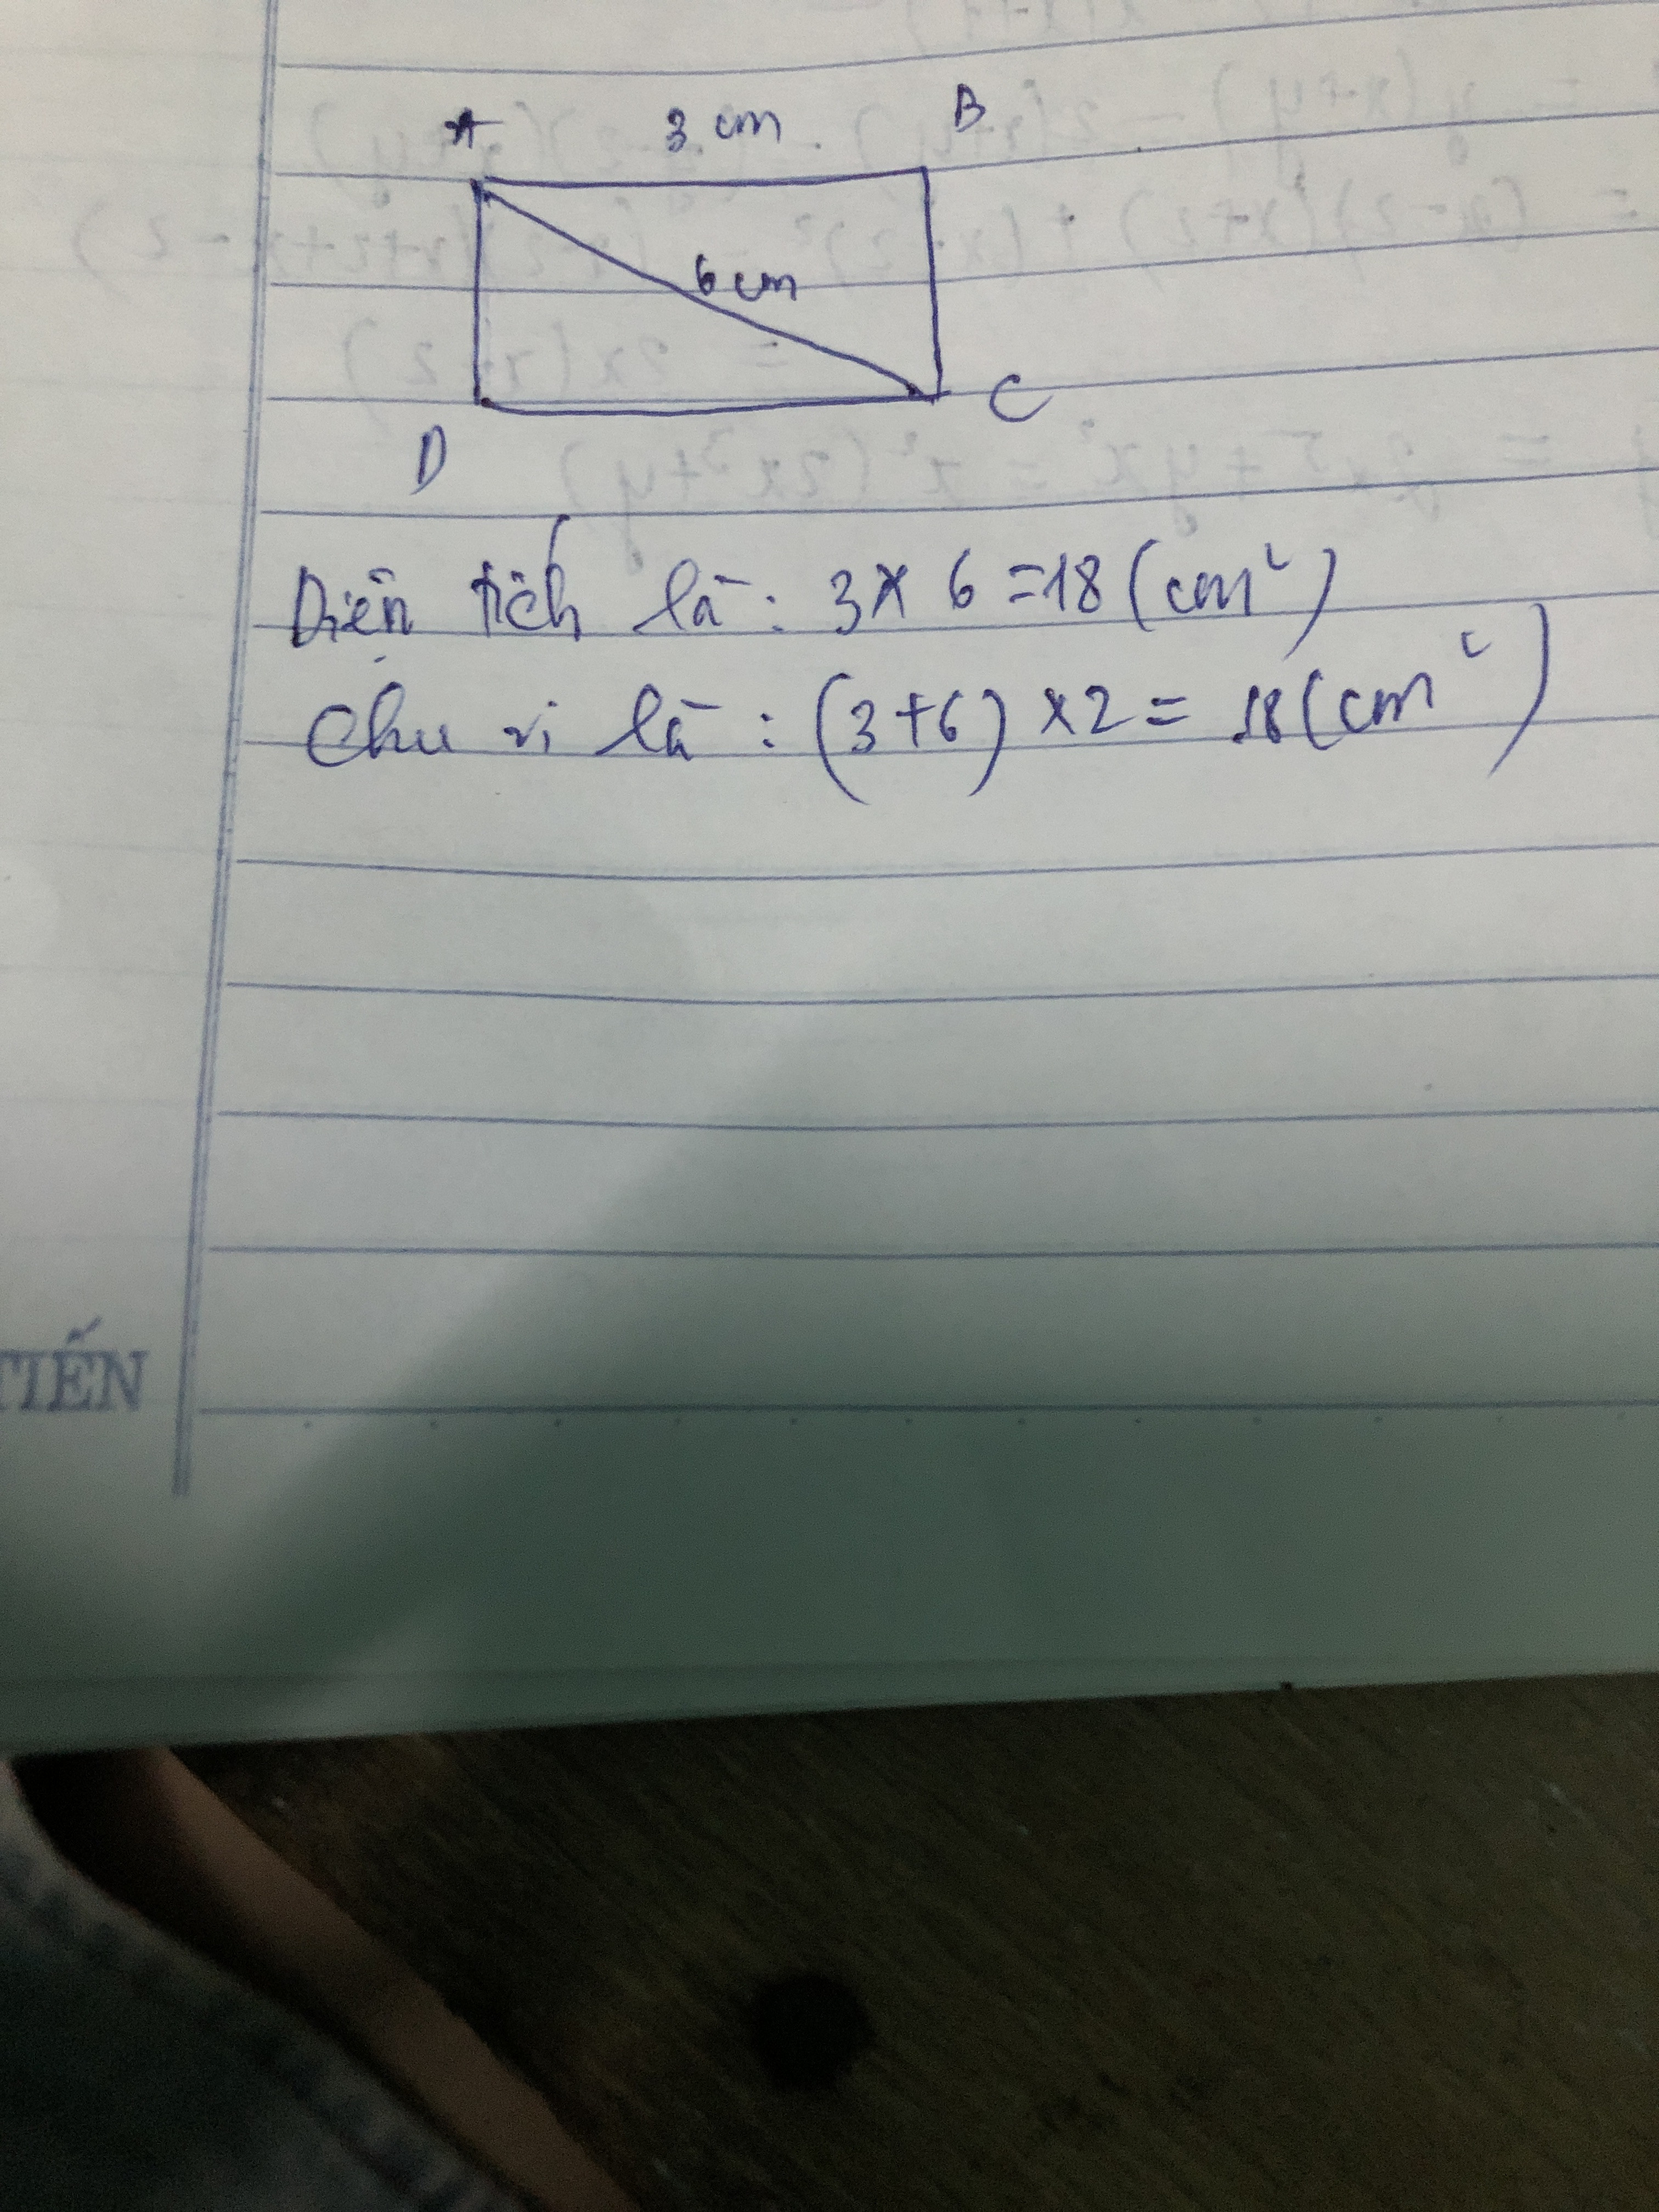 A 3 cm B
6 cm
C
D
Diện tích là: 3 x 6 = 18 (cm²)
Chu vi là : (3+6) x 2 = 18 (cm²)
TIẾN